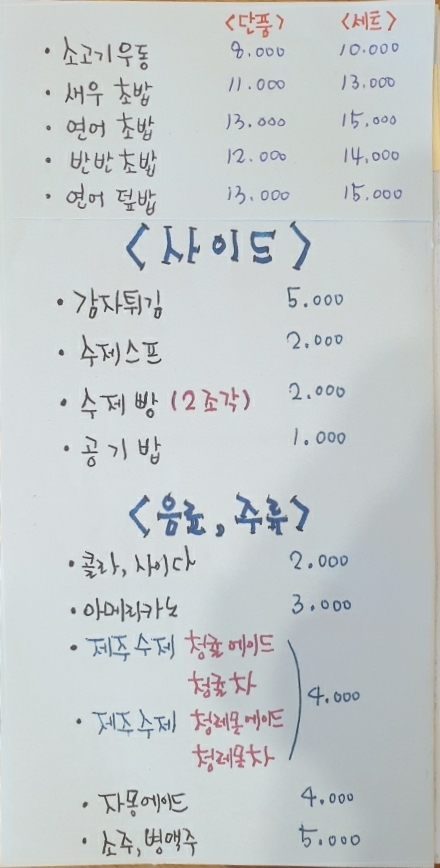 <단품> <세트>
· 소고기우동 8.000 10.000
· 새우 초밥 11.000 13.000
· 연어 초밥 13.000 15.000
· 반반초밥 12.000 14.000
· 연어 덮밥 13.000 15.000
<사이드>
· 감자튀김 5.000
· 수제스프 2.000
· 수제빵 (2조각) 2.000
· 공기밥 1.000
<음료, 주류>
· 콜라, 사이다 2.000
· 아메리카노 3.000
· 제주수제 청귤에이드
청귤차
4.000
· 제주수제 청레몬에이드
청레몬차
· 자몽에이드 4.000
· 소주, 병맥주 5.000